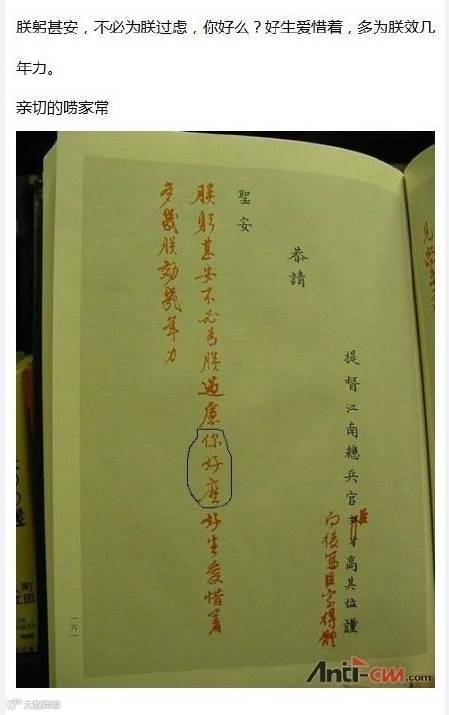 朕躬甚安，不必为朕过虑，你好么？好生爱惜着，多为朕效几
年力。
亲切的唠家常
提督江南總兵官臣高其位謹
向後寫臣字得體
恭請
聖安
朕躬甚安不必為朕過慮你好麼好生愛惜著
多為朕効幾年力
一六
Anti-cnn.com